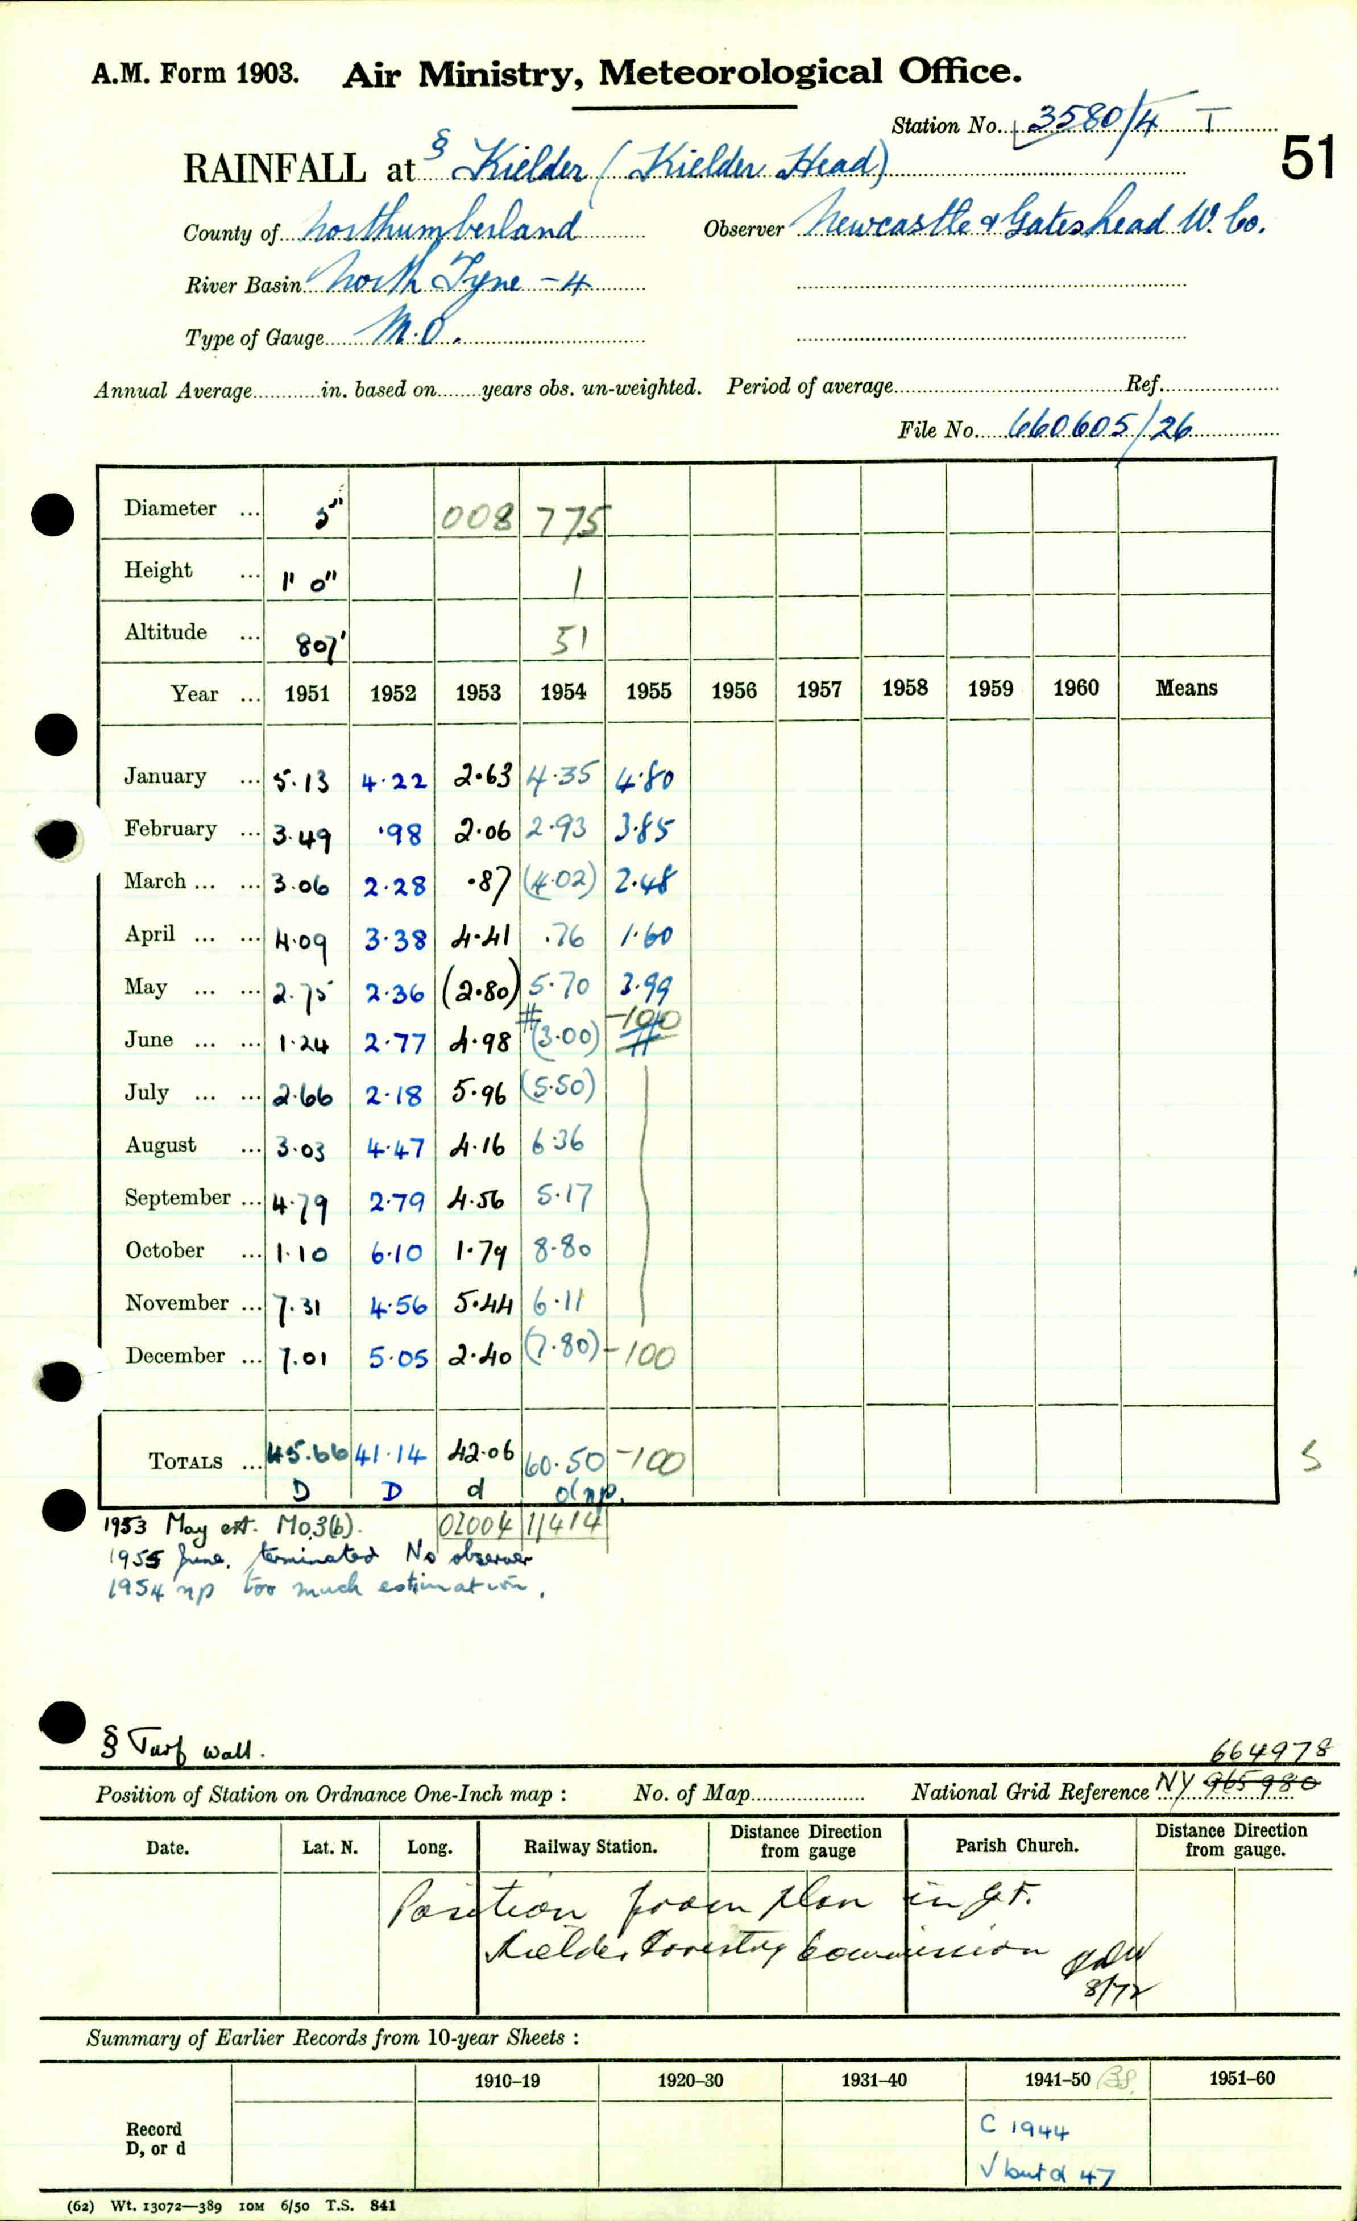 A.M. Form 1903. Air Ministry, Meteorological Office.
Station No. 3580/4 I
51
RAINFALL at § Kielder (Kielder Head)
County of Northumberland Observer Newcastle & Gateshead W. Co.
River Basin North Tyne - 4
Type of Gauge M.O.
Annual Average in. based on years obs. un-weighted. Period of average Ref.
File No. 660605/26
Diameter ... 5" 008 775
Height ... 1' 0" 1
Altitude ... 807' 51
Year ... 1951 1952 1953 1954 1955 1956 1957 1958 1959 1960 Means
January ... 5.13 4.22 2.63 4.35 4.80
February ... 3.49 .98 2.06 2.93 3.85
March ... ... 3.06 2.28 .87 (4.02) 2.48
April ... ... 4.09 3.38 4.41 .76 1.60
May ... ... 2.75 2.36 (2.80) 5.70 3.99
June ... ... 1.24 2.77 4.98 # (3.00) -100 #
July ... ... 2.66 2.18 5.96 (5.50)
August ... 3.03 4.47 4.16 6.36
September ... 4.79 2.79 4.56 5.17
October ... 1.10 6.10 1.79 8.80
November ... 7.31 4.56 5.44 6.11
December ... 7.01 5.05 2.40 (7.80) -100
TOTALS ... 45.66 41.14 42.06 60.50 -100
S
D D d d np.
1953 May est. M03(b). 02004 11414
1955 June. terminated No observer
1954 np too much estimation.
§ Turf wall.
664978
Position of Station on Ordnance One-Inch map : No. of Map National Grid Reference NY 965980
Date. Lat. N. Long. Railway Station. Distance Direction from gauge Parish Church. Distance Direction from gauge.
Position from plan in
Kielder Forestry Commission
8/72
Summary of Earlier Records from 10-year Sheets :
1910-19 1920-30 1931-40 1941-50 1951-60
Record D, or d
C 1944
√ but d 47
(62) Wt. 13072—389 10M 6/50 T.S. 841